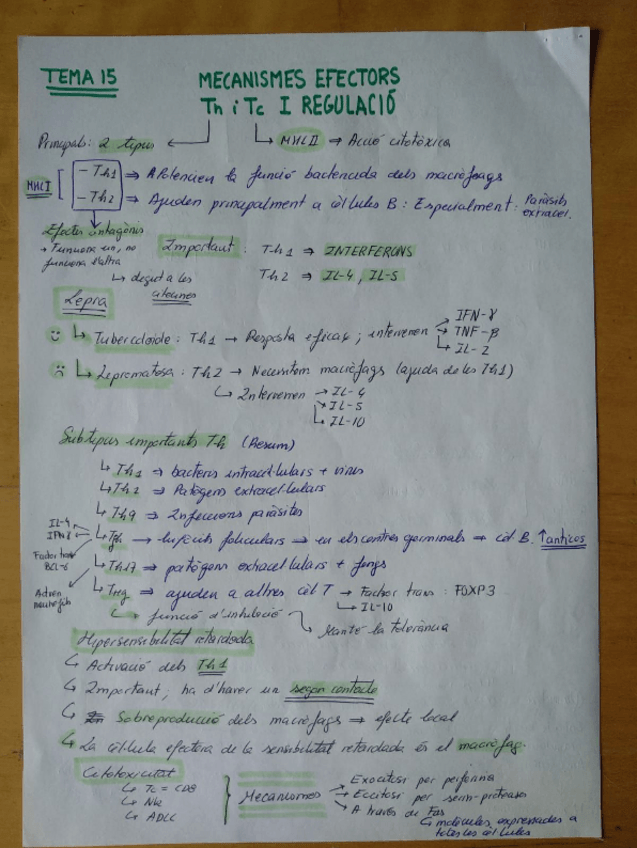 TEMA 15
MECANISMES EFECTORS
Th i Tc I REGULACIÓ
Principals: 2 tipus
MHC II ⇒ Acció citotòxica
MHC I
- Th1 ⇒ Potencien la funció bactericida dels macròfags
- Th2 ⇒ Ajuden principalment a cèl·lules B: Especialment: Paràsits extracel.
Efectes antagònis
→ Funciona un, no funciona l'altra
↳ degut a les citocines
Important: Th1 ⇒ INTERFERONS
Th2 ⇒ IL-4, IL-5
Lepra
↳ Tuberculoide: Th1 → Resposta eficaç; intervenen
IFN-γ
TNF-β
IL-2
↳ Lepromatosa: Th2 → Necessitem macròfags (ajuda de les Th1)
↳ Intervenen → IL-4
IL-5
IL-10
Subtipus importants Th (Resum)
↳ Th1 ⇒ bacteris intracel·lulars + virus
↳ Th2 ⇒ Patògens extracel·lulars
↳ Th9 ⇒ Infeccions paràsits
IL-4
↳ Tfh → limfòcits foliculars ⇒ en els centres germinals ⇒ cèl B. ↑anticos
Factor trans
BCL-6
↳ Th17 ⇒ patògens extracel·lulars + fongs
Activen neutròfils
↳ Treg ⇒ ajuden a altres cèl T → Factor trans: FOXP3
↳ IL-10
↳ funció d'inhibició
Manté la tolerància
Hipersensibilitat retardada
↳ Activació dels Th1
↳ Important; ha d'haver un segon contacte
↳ Sobreproducció dels macròfags ⇒ efecte local
↳ La cèl·lula efectora de la sensibilitat retardada és el macròfag.
Citotoxicitat
↳ Tc = CD8
↳ NK
↳ ADCC
Mecanismes
Exocitosi per perforina
per serin-proteases
A través de Fas
↳ molècules expressades a totes les cèl·lules